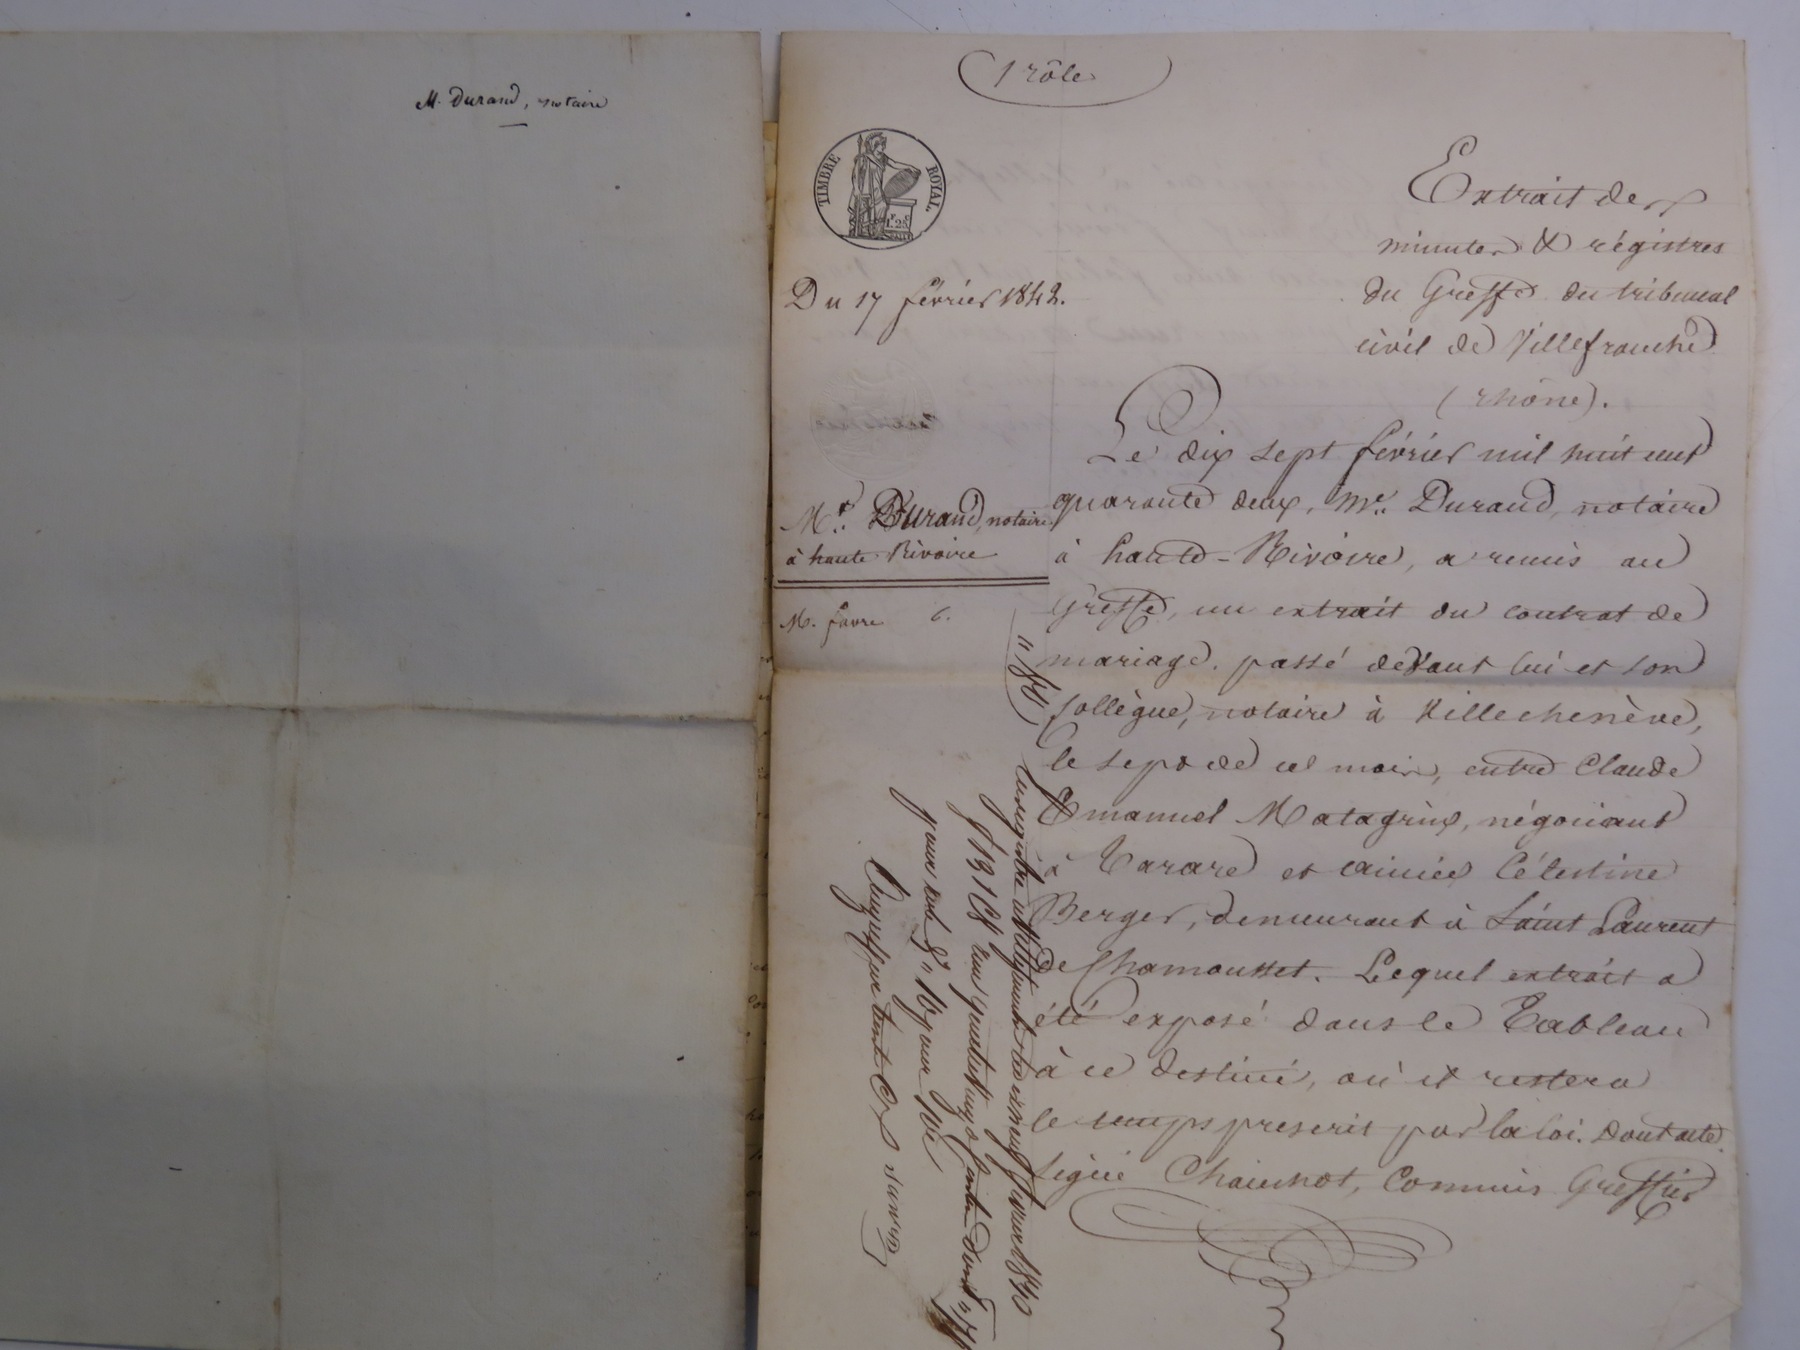 M. Durand, notaire
1 rôle
TIMBRE ROYAL.
1F. 25C
Du 17 février 1842.
Extrait des
minutes & régistres
du Greffe du tribunal
civil de Villefranche
(rhône).
Mr. Durand, notaire
à haute Rivoire
M. favre 6.
Le dix sept février mil huit cent
quarante deux, Me. Durand, notaire
à haute-Rivoire, a remis au
Greffe, un extrait du contrat de
mariage. passé devant lui et son
collègue, notaire à Villechenève,
le sept de ce mois, entre Claude
Emanuel Matagrin, négociant
à Tarare et aimée Célestine
Berger, demeurant à Saint Laurent
de Chamousset. Lequel extrait a
été exposé dans le Tableau
à ce destiné, où il restera
le temps prescrit par la loi. Dont acte.
signé Chaignot, Commis Greffier
Enregistré à Villefranche